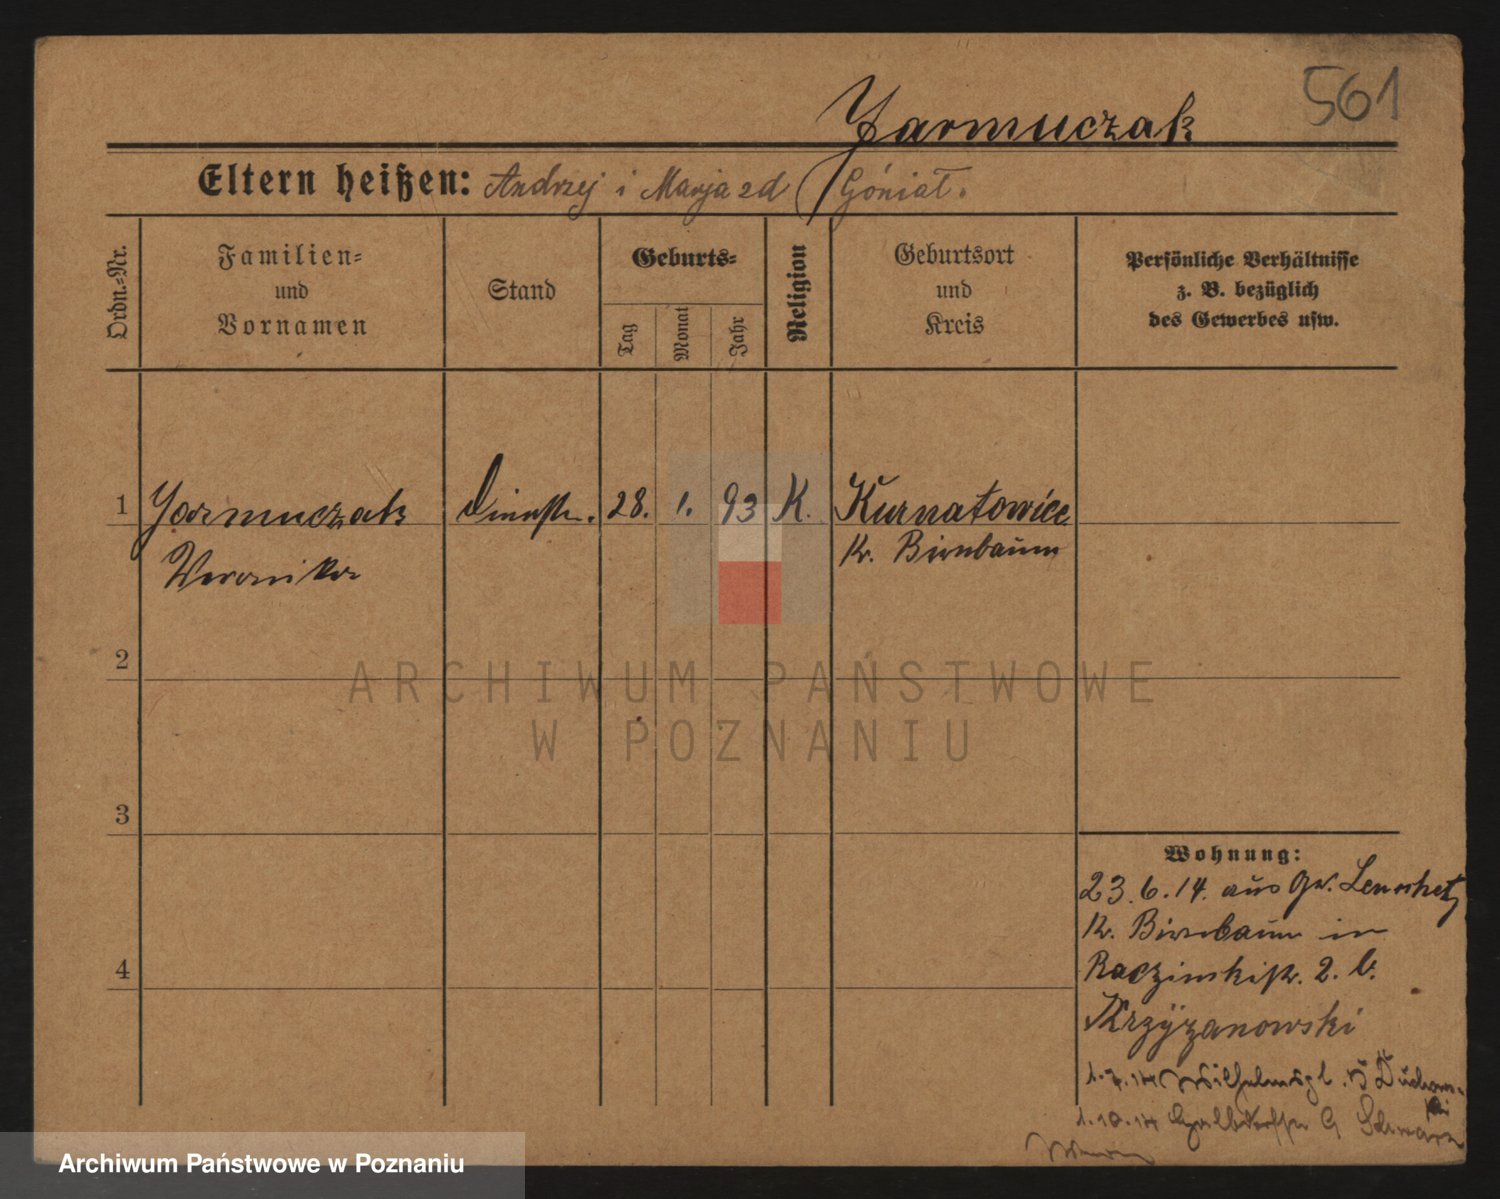 561
Jarmuczak
Eltern heißen: Andrzej i Marja zd Góniat.
Ordn.-Nr.
Familien-
und
Vornamen
Stand
Geburts-
Tag
Monat
Jahr
Religion
Geburtsort
und
Kreis
Persönliche Verhältnisse
z. B. bezüglich
des Gewerbes usw.
1
Jarmuczak
Dienstm.
28.
1.
93
K.
Kurnatowice
Kr. Birnbaum
Weronika
2
ARCHIWUM PAŃSTWOWE
W POZNANIU
3
Wohnung:
23.6.14. aus Gr. Lenschetz
Kr. Birnbaum in
4
Raczinskistr. 2. b.
Krzÿzanowski
1.7.14 Wilhelmspl.
1.10.14
Archiwum Państwowe w Poznaniu